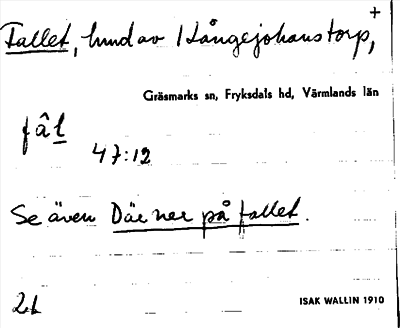 +
Fallet, hund av 1 Långejohanstorp,
Gräsmarks sn, Fryksdals hd, Värmlands län
fâl
47:12
Se även Där ner på fallet.
ISAK WALLIN 1910